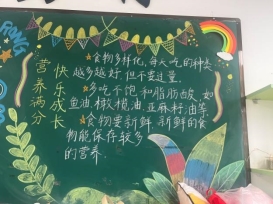 营养满分
快乐成长
食物多样化,每天吃的种类
越多越好,但不要过量.
多吃不饱和脂肪酸,如
鱼油,橄榄油,亚麻籽油等
食物要新鲜,新鲜的食
物能保存较多
的营养.